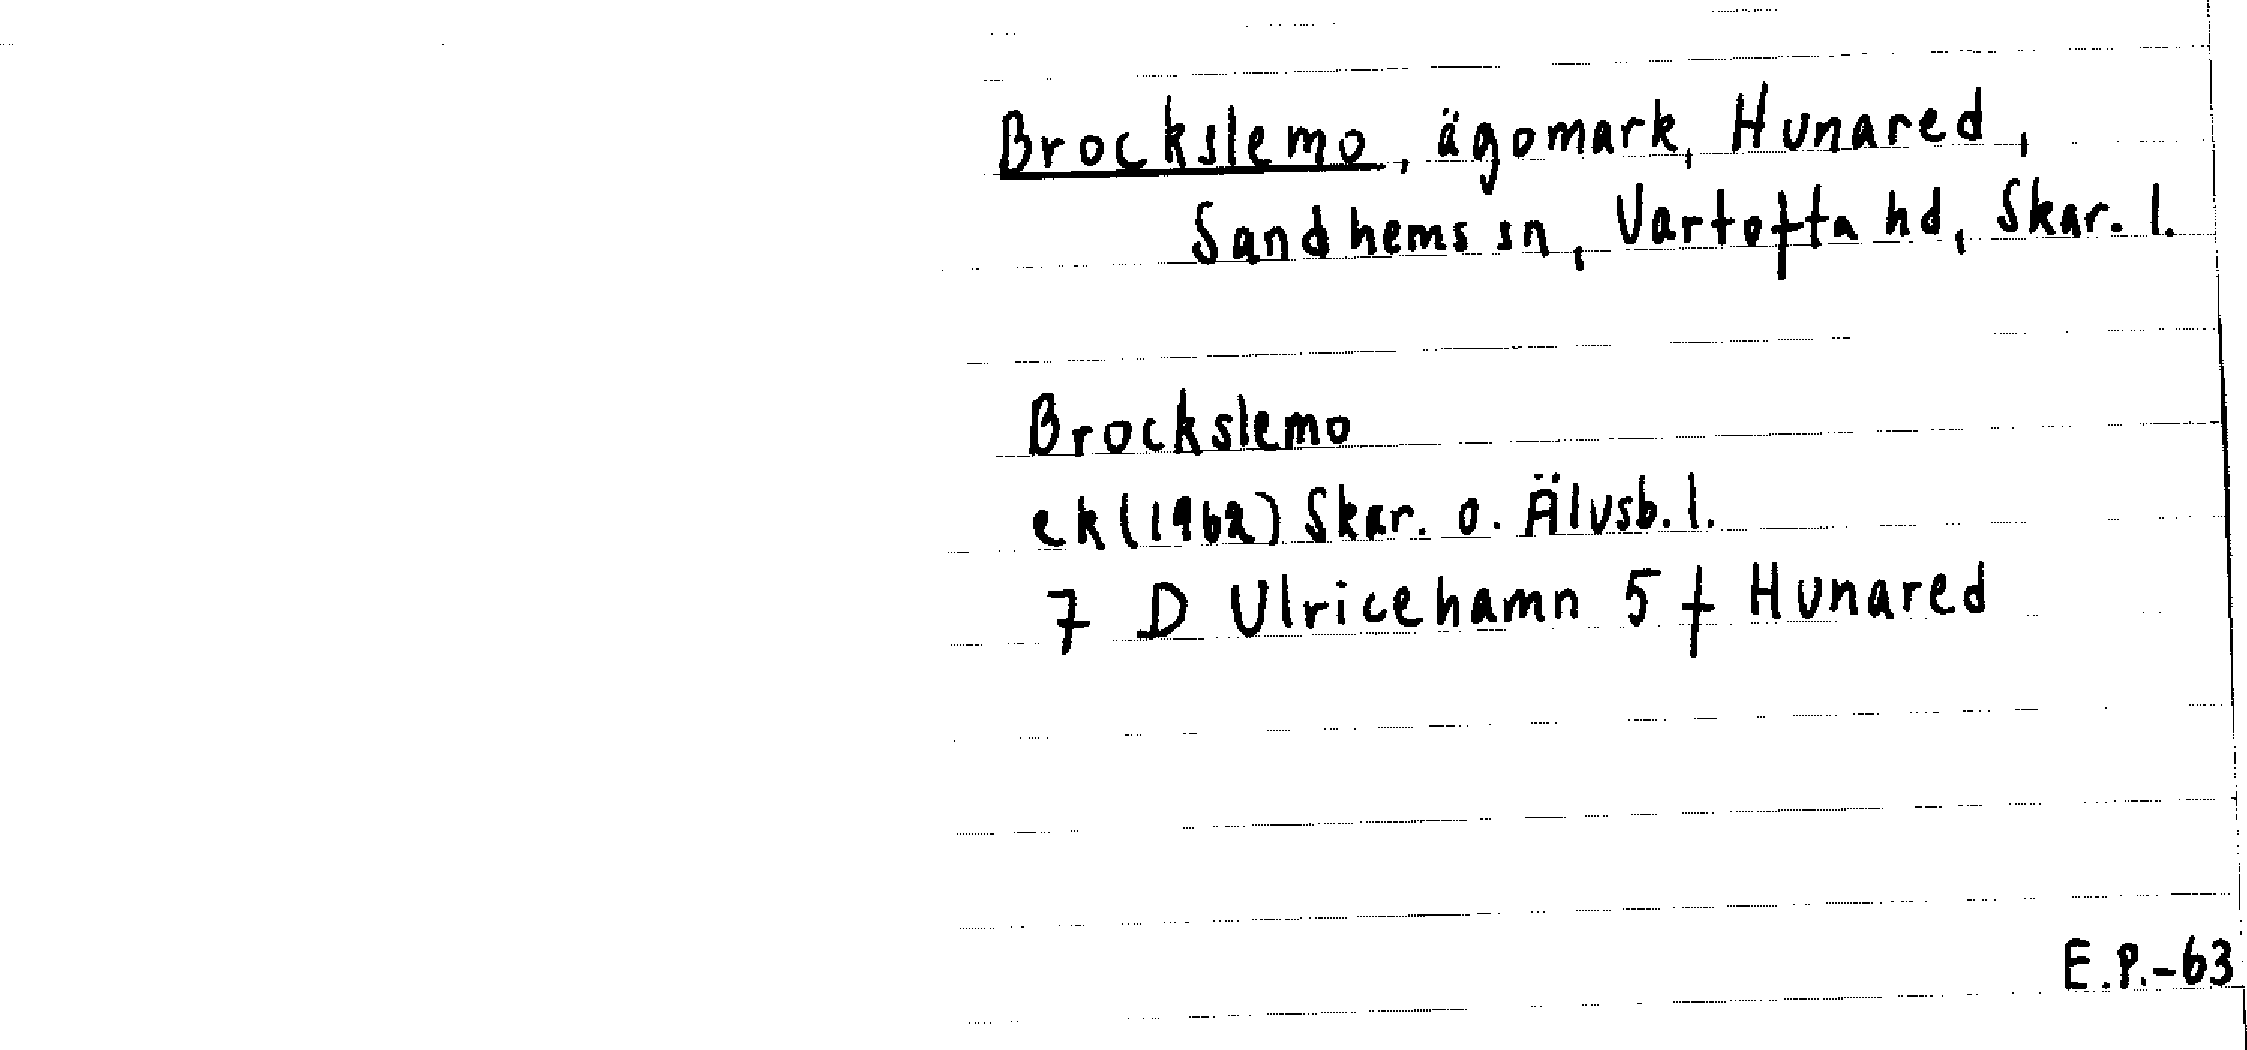 Brockslemo, ägomark, Hunared,
Sandhems sn, Vartofta hd, Skar. l.
Brockslemo
ek (1962) Skar. o. Älvsb. l.
7 D Ulricehamn 5 f Hunared
E.P.-63